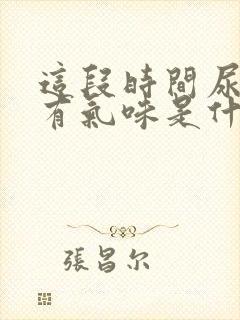 這段時間尿
有氣味是什
張昌尔